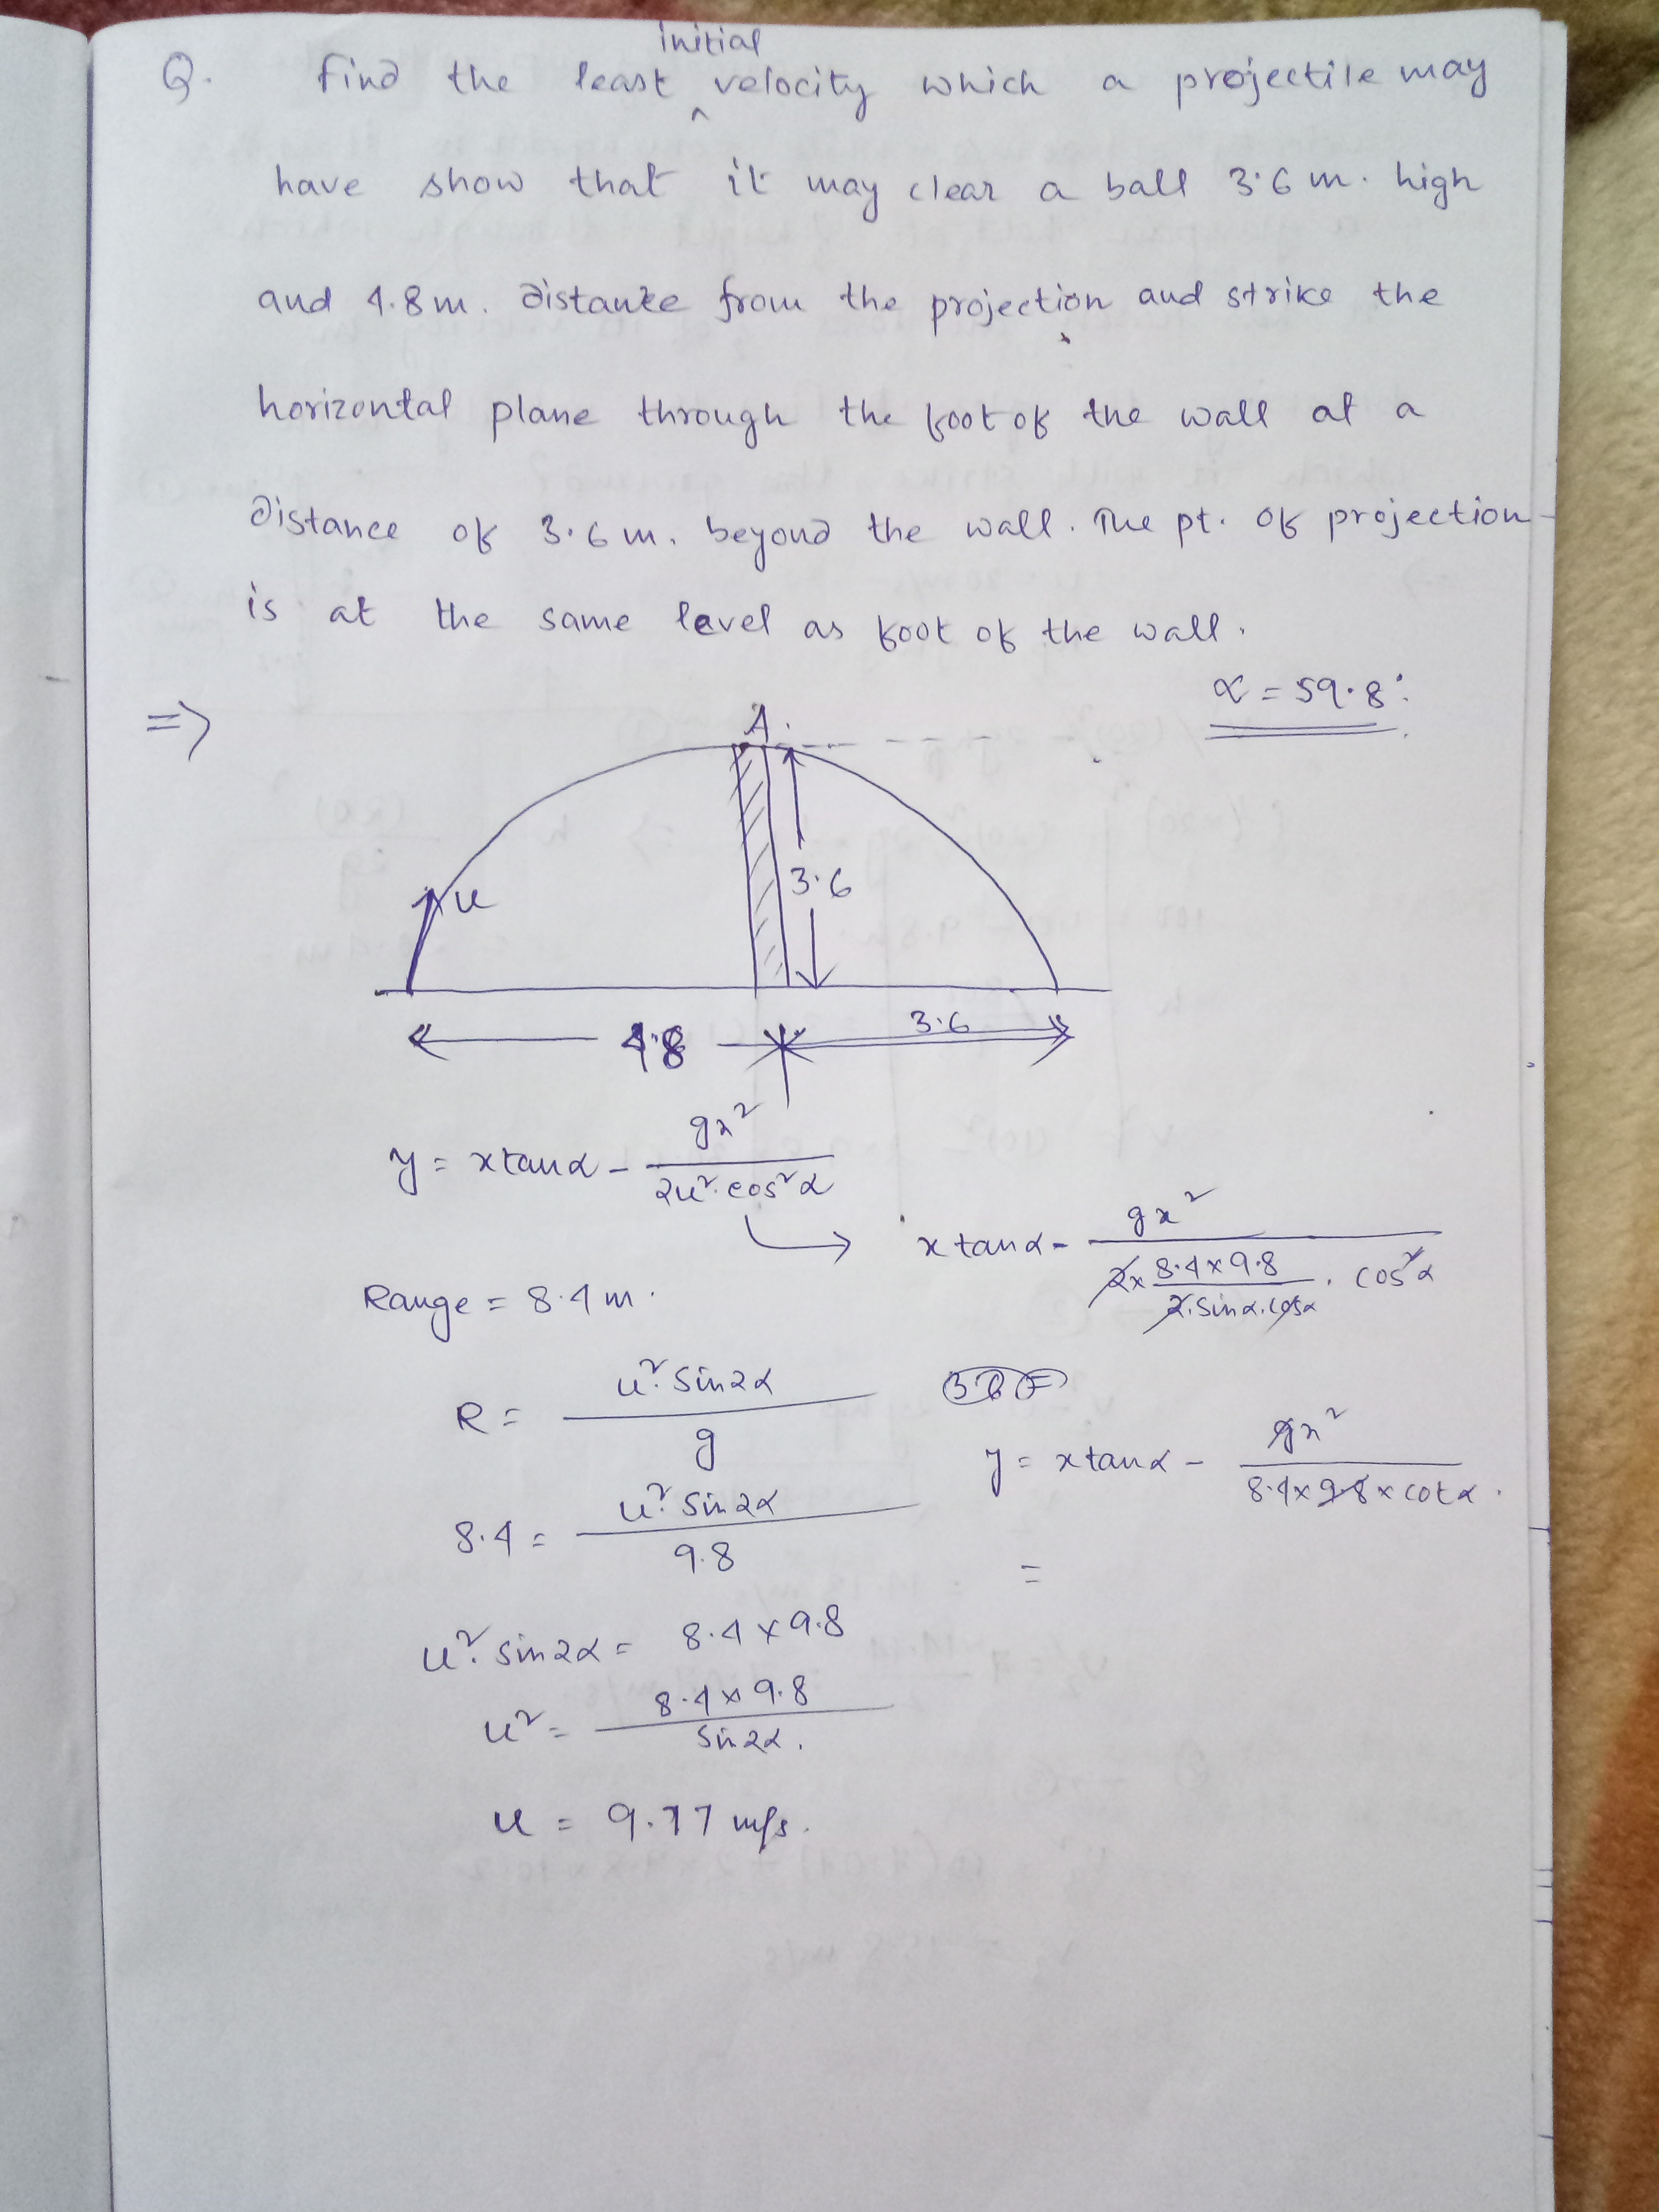 initial
Q. Find the least ^ velocity which a projectile may
have show that it may clear a ball 3.6 m. high
and 4.8 m. distance from the projection and strike the
horizontal plane through the foot of the wall at a
distance of 3.6 m. beyond the wall. The pt. of projection
is at the same level as foot of the wall.
α = 59.8°.
=>
A.
u
3.6
4.8
3.6
y = x tanα - gx² / 2u².cos²α
x tanα - gx² / (2 x (8.4 x 9.8 / 2.sinα.cosα) . cos²α)
Range = 8.4 m.
R = u².sin2α / g
3.6 =
y = x tanα - gx² / 8.4 x 9.8 x cotα.
8.4 = u².sin2α / 9.8
=
u².sin2α = 8.4 x 9.8
u² = 8.4 x 9.8 / sin2α.
u = 9.77 m/s.